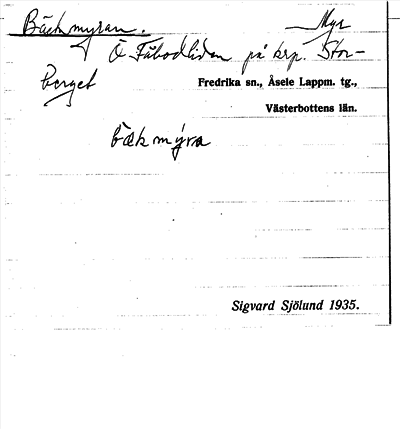 Bäckmyran. Myr
Ö Fäbodliden på krp. Stor-
berget
Fredrika sn., Åsele Lappm. tg.,
Västerbottens län.
bækmýra
Sigvard Sjölund 1935.